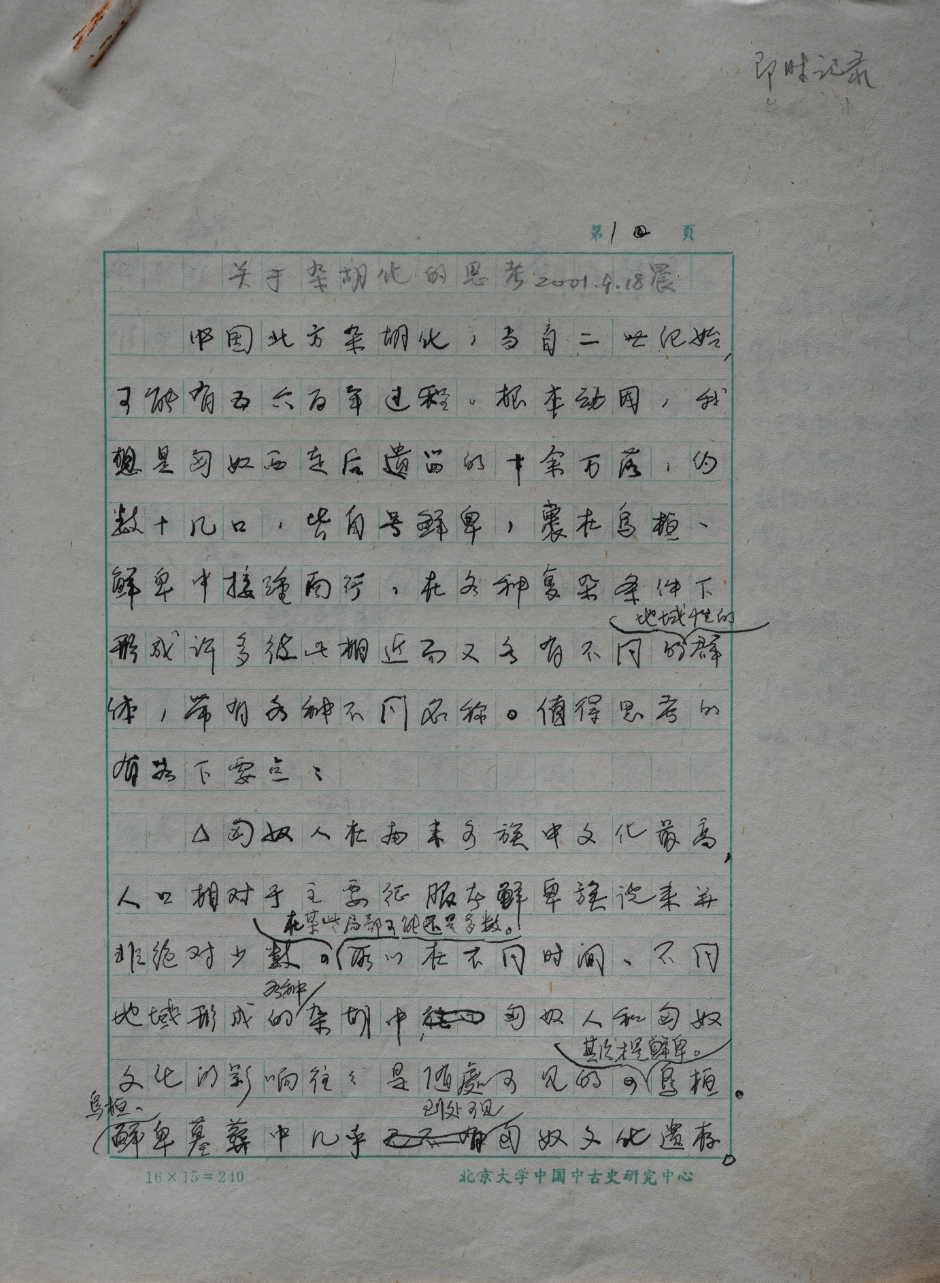 即时记录
第 1 页
关于杂胡化的思考 2001.9.18晨
中国北方杂胡化，当自二世纪始，
可能有五六百年过程。根本动因，我
想是匈奴西走后遗留的十余万落，约
数十几口，皆自号鲜卑，裹在乌桓、
鲜卑中接踵而行，在各种复杂条件下
地域性的
形成许多彼此相近而又各有不同的群
体，带有各种不同名称。值得思考的
有若下要点：
△匈奴人在南来各族中文化最高，
人口相对于主要征服者鲜卑族说来并
在某些局部可能还是多数。
非绝对少数，所以在不同时间、不同
各种
地域形成的杂胡中，匈奴人和匈奴
其次才是鲜卑。
文化的影响往往是随處可见的。乌桓
乌桓、 到处可见
鲜卑墓葬中几乎匈奴文化遗存。
16×15=240 北京大学中国中古史研究中心